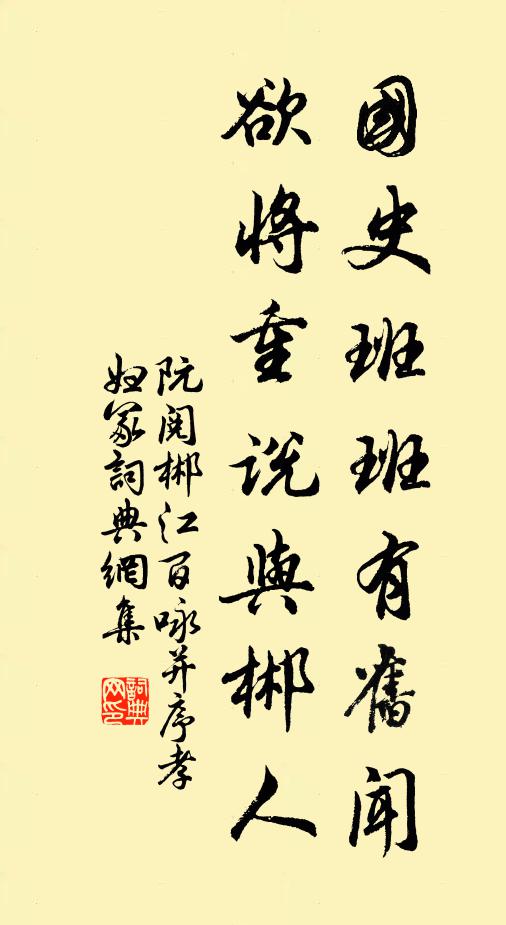 國史班班有舊聞
欲將重说與郴人
阮閱郴江百咏并序孝
妇冢詞典網集
詞典
网印